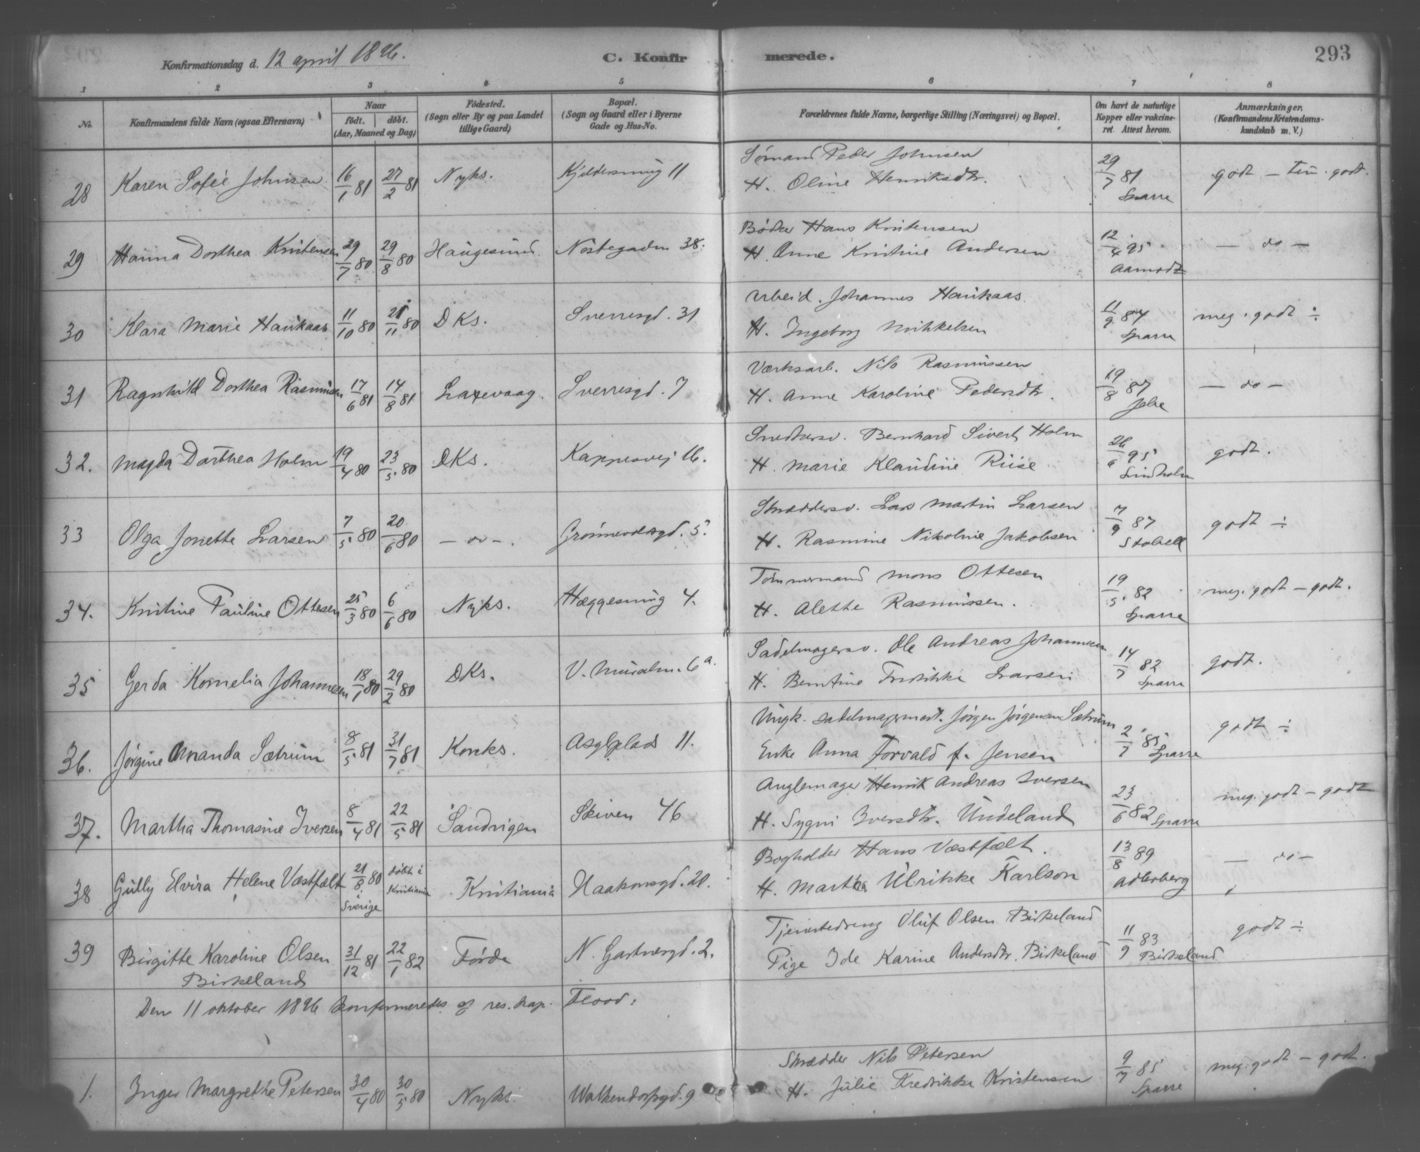 Konfirmationsdag d. 12 april 1896.
C. Konfirmerede.
293
1 2 3 4 5 6 7 8
No. Konfirmandens fulde Navn (ogsaa Efternavn) Naar født. døbt. (Aar, Maaned og Dag) Fødested. (Sogn eller By og paa Landet tillige Gaard) Bopæl. (Sogn og Gaard eller i Byerne Gade og Hus-No. Forældrenes fulde Navne, borgerlige Stilling (Næringsvei) og Bopæl. Om havt de naturlige Kopper eller vaccineret. Attest herom. Anmærkninger. (Konfirmandens Kristendomskundskab m. V.)
28 Karen Sofie Johnsen 16/1 81 27/2 81 Nyks. 11 Sømand Peder Johnsen
H. Oline Henriksdtr. 29/7 81 Sparre godt – godt.
29 Hanna Dorthea Kristensen 29/7 80 29/8 80 Haugesund Nøstegaden 38. Bødker Hans Kristensen
H. Anne Kristine Andersen 12/4 95. Aamodt – do –
30 Klara Marie Haukaas 11/10 80 21/11 80 DKs. Sverresgd. 31 Arbeid. Johannes Haukaas
H. Ingeborg Mikkelsen 11/9 84 Sparre meg. godt ÷
31 Ragnhild Dorthea Rasmussen 17/6 81 14/8 81 Laxevaag. Sverresgd. 7 Værksarb. Nils Rasmussen
H. Anne Karoline Pedersdtr. 19/8 87 – do –
32. Magda Dorthea Holm 19/4 80 23/5 80 DKs. 16. Snedkersv. Bernhard Sivert Holm
H. Marie Klaudine Riise 26/6 95 Lindholm godt.
33 Olga Jonette Larsen 7/5 80 20/6 80 – do –. Grønnevoldsgd. 5. Skræddersv. Lars Martin Larsen
H. Rasmine Nikoline Jakobsen 7/9 87 Stabell godt ÷
34. Kristine Pauline Ottesen 25/3 80 6/6 80 Nyks. Heggesmug 4. Tømmermand Mons Ottesen
H. Alette Rasmussen. 19/5 82 Sparre meg. godt – godt.
35 Gerda Kornelia Johannesen 18/1 80 29/2 80 DKs. V. Muralm. 6a. Sadelmagersv. Ole Andreas Johannesen
H. Berntine Fredrikke Larsen 14/7 82 Sparre godt.
36. Jørgine Amanda Sætrum 8/5 81 31/7 81 Korsks. Asylplads 11. Ungk. sadelmagermest. Jørgen Jørgensen Sætrum
Enke Anna Torvald f. Jensen 2/7 85 Sparre godt ÷
37. Martha Thomasine Iversen 8/4 81 22/5 81 Sandvigen Skiven 46 Anglemager Henrik Andreas Iversen
H. Sygni Iversdtr. Undeland 23/6 82 Sparre meg. godt – godt
38 Gully Elvira Helene Væstfælt 21/8 80 Sverige døbt i Kristiania Kristiania Haakonsgd. 20. Bogholder Hans Væstfælt.
H. Martha Ulrikke Karlson 13/8 89 Adlerberg – do –
39 Birgitte Karoline Olsen 31/12 81 22/1 82 Førde N. Gartnergd. 2. Tjenestedreng Oluf Olsen Birkeland
Birkeland Pige Ide Karine Andersdtr. Birkeland 11/9 83 Birkeland godt ÷
Den 11 oktober 1896 konfirmeredes af res. kap. Flood:
1. Inger Margrethe Petersen 30/4 80 30/5 80 Nyks. Walkendorfsgd. 9 Skrædder Nils Petersen
H. Julie Fredrikke Kristensen 9/7 85 Sparre meg. godt – godt.